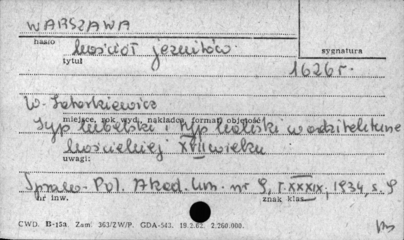 WARSZAWA
hasło kościół jezuitów. sygnatura
tytuł
1626 r.
W. Tatarkiewicz
miejsce, rok wyd., nakładca, format, objętość
Typ lubelski i typ kaliski w architekturze
kościelnej XVII wieku
uwagi:
Spraw. Pol. Akad. Um. nr 9, t. XXXIX, 1934, s. 9
nr inw. znak klas.
CWD. B-15a. Zam. 363/ZW/P. GDA-543. 19.2.62. 2.260.000.